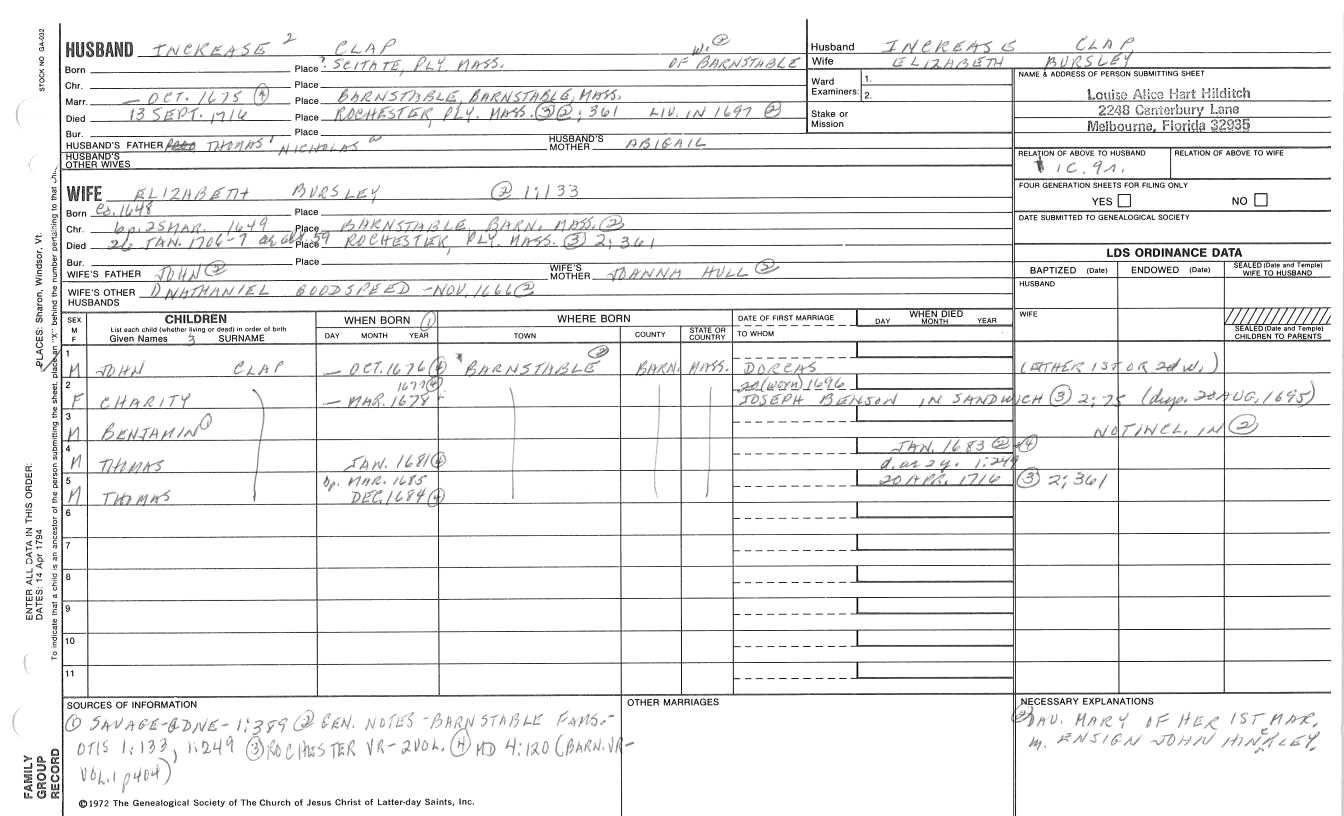 STOCK NO GA-032
HUSBAND INCREASE 2 CLAP W. ②
Born Place ? SCITATE, PLY MASS. OF BARNSTABLE
Chr. Place
Marr. — OCT. 1675 ④ Place BARNSTABLE, BARNSTABLE, MASS.
Died 13 SEPT. 1716 Place ROCHESTER, PLY. MASS. ③ 2; 361 LIV. IN 1697 ②
Bur. Place
HUSBAND'S FATHER THOMAS 1 NICHOLAS HUSBAND'S MOTHER ABIGAIL
HUSBAND'S OTHER WIVES
WIFE ELIZABETH BURSLEY ② 1;133
Born Ca. 1648 Place
Chr. bp. 25 MAR. 1649 Place BARNSTABLE, BARN. MASS. ②
Died 26 JAN. 1706-7 ag abt 59 Place ROCHESTER, PLY. MASS. ③ 2; 361
Bur. Place
WIFE'S FATHER JOHN ② WIFE'S MOTHER JOANNA HULL ②
WIFE'S OTHER HUSBANDS 1) NATHANIEL GOODSPEED - NOV. 1666 ②
Husband INCREASE CLAP
Wife ELIZABETH BURSLEY
Ward Examiners: 1.
2.
Stake or Mission
NAME & ADDRESS OF PERSON SUBMITTING SHEET
Louise Alice Hart Hilditch
2248 Canterbury Lane
Melbourne, Florida 32935
RELATION OF ABOVE TO HUSBAND RELATION OF ABOVE TO WIFE
1C. 9r.
FOUR GENERATION SHEETS FOR FILING ONLY
YES NO
DATE SUBMITTED TO GENEALOGICAL SOCIETY
LDS ORDINANCE DATA
BAPTIZED (Date) ENDOWED (Date) SEALED (Date and Temple) WIFE TO HUSBAND
HUSBAND
WIFE
SEALED (Date and Temple) CHILDREN TO PARENTS
SEX M F CHILDREN WHEN BORN ① WHERE BORN DATE OF FIRST MARRIAGE WHEN DIED
List each child (whether living or dead) in order of birth
Given Names 3 SURNAME DAY MONTH YEAR TOWN COUNTY STATE OR COUNTRY TO WHOM DAY MONTH YEAR
1 M JOHN CLAP — OCT. 1676 ④ BARNSTABLE ② BARN. MASS. DORCAS (EITHER 1ST OR 2d W.)
2 F CHARITY 1677 ④ — MAR. 1678 1696 JOSEPH BENSON IN SANDWICH ③ 2; 75 (dup. 22 AUG, 1695)
3 M BENJAMIN ① NOT INCL. IN ②
4 M THOMAS JAN. 1681 ④ JAN. 1683 ② ④ d. as 2y. 1:249
5 M THOMAS bp. MAR. 1685 DEC. 1684 ④ 20 APR. 1716 ③ 2; 361
6
7
8
9
10
11
SOURCES OF INFORMATION
① SAVAGE-GDNE-1:389 ② GEN. NOTES - BARNSTABLE FAMS.-
OTIS 1:133, 1:249 ③ ROCHESTER VR - 2VOL. ④ MD 4:120 (BARN. VR-
VOL. 1 p 404)
OTHER MARRIAGES
NECESSARY EXPLANATIONS
② DAU. MARY OF HER 1ST MAR,
m. ENSIGN JOHN HINCKLEY.
©1972 The Genealogical Society of The Church of Jesus Christ of Latter-day Saints, Inc.
FAMILY GROUP RECORD
ENTER ALL DATA IN THIS ORDER:
DATES: 14 Apr 1794
PLACES: Sharon, Windsor, Vt.
To indicate that a child is an ancestor of the person submitting the sheet, place an "X" behind the number pertaining to that